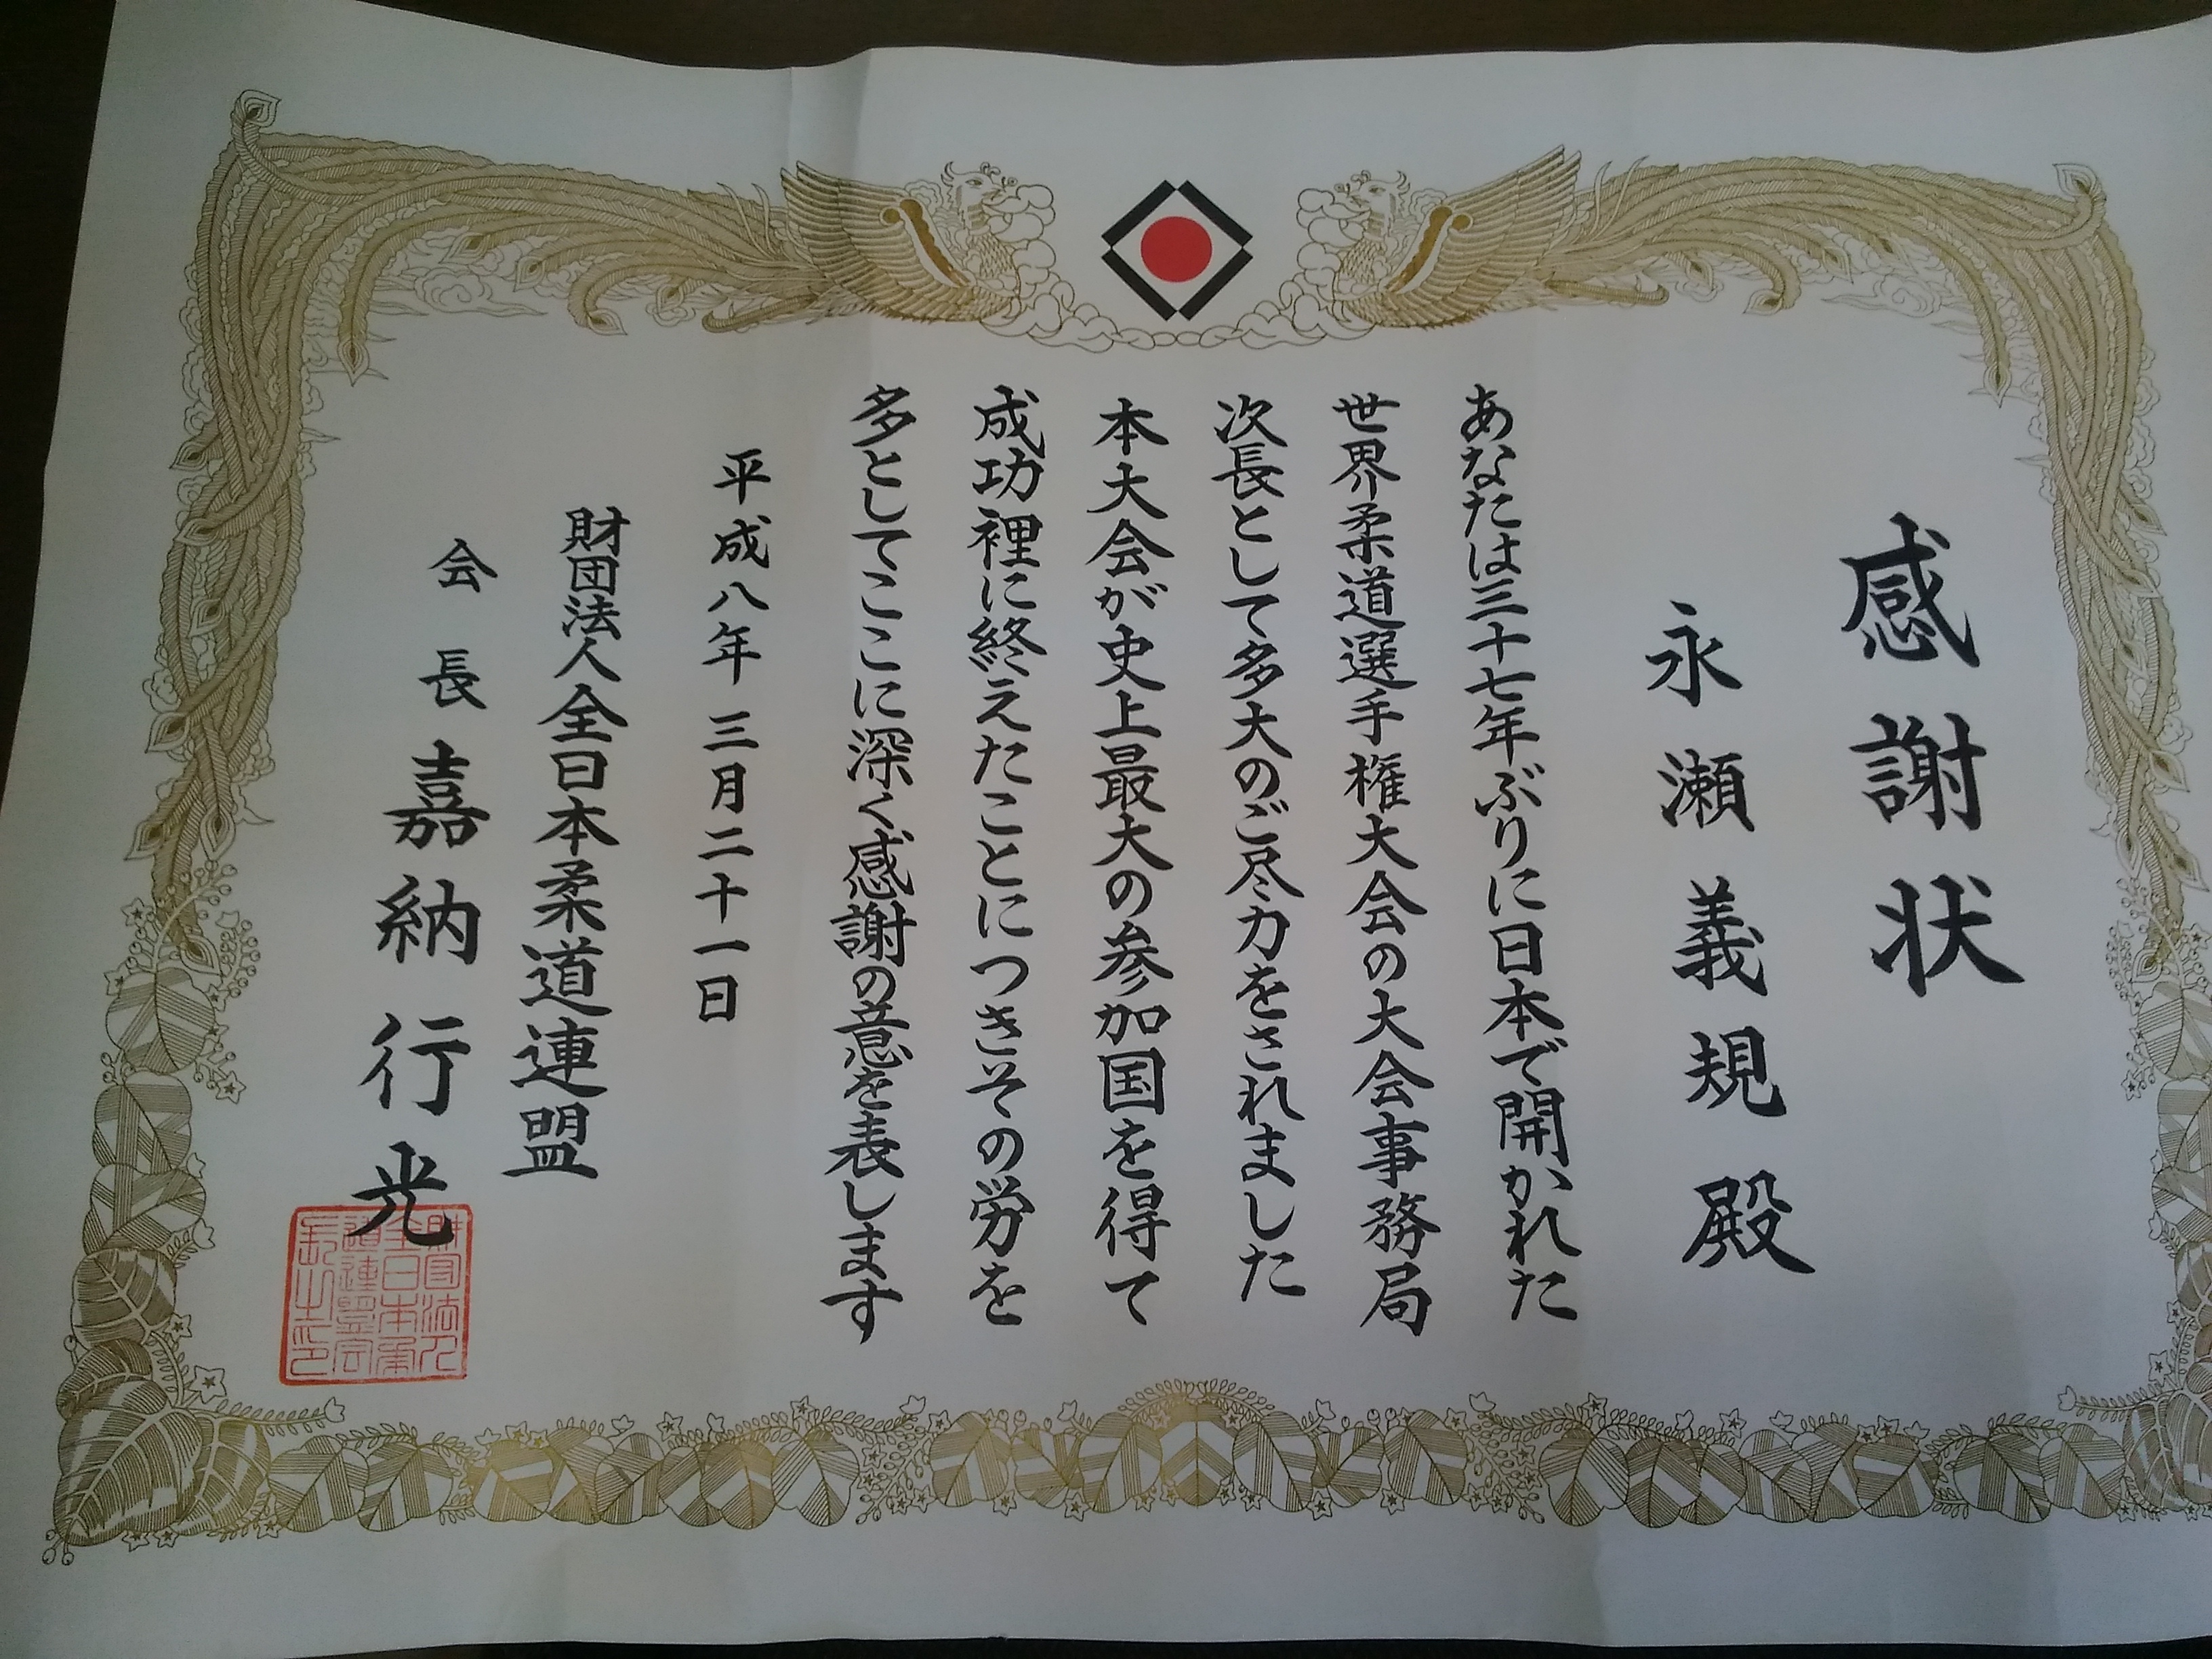 感謝状
永瀬義規殿
あなたは三十七年ぶりに日本で開かれた
世界柔道選手権大会の大会事務局
次長として多大のご尽力をされました
本大会が史上最大の参加国を得て
成功裡に終えたことにつきその労を
多としてここに深く感謝の意を表します
平成八年三月二十一日
財団法人全日本柔道連盟
会長嘉納行光
財団法人
全日本柔
道連盟会
長之印